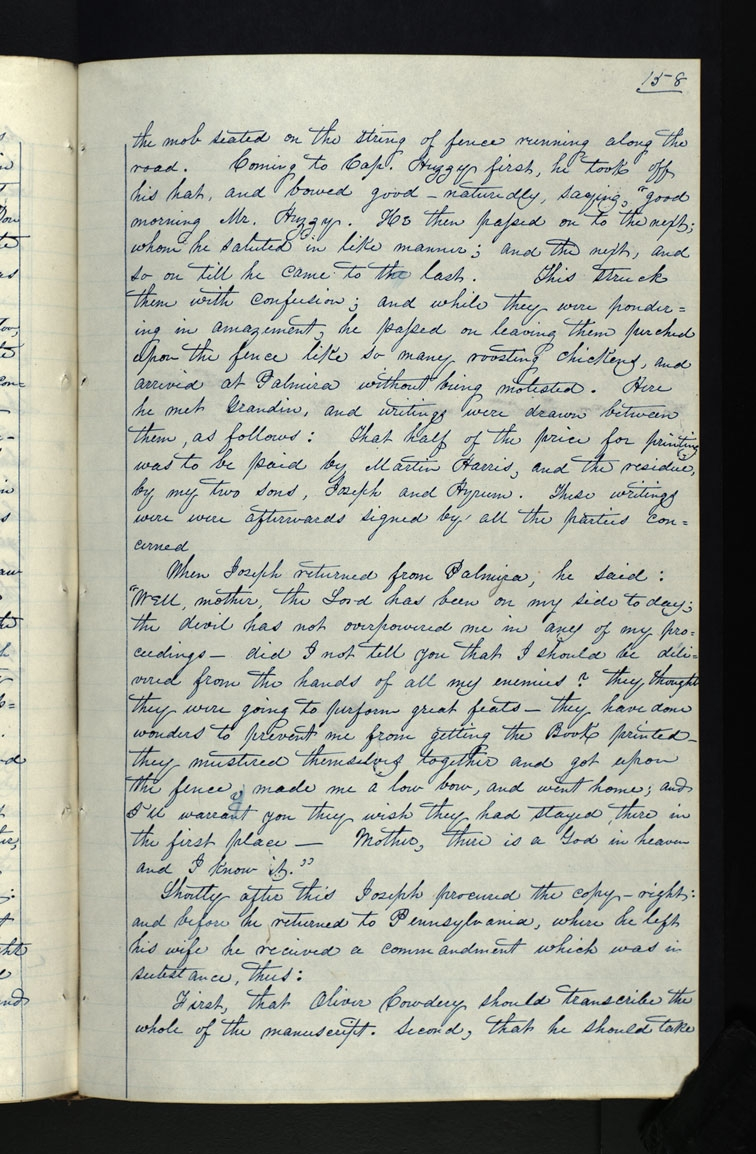 158
the mob seated on the string of fence running along the
road. Coming to Cap. Huzzy first, he took off
his hat, and bowed good-naturedly, saying, "good
morning Mr. Huzzy. He then passed on to the next;
whom he saluted in like manner; and the next, and
so on till he came to the last. This struck
them with confusion; and while they were ponder=
ing in amazement, he passed on leaving them perched
upon the fence like so many roosting chickens, and
arrived at Palmira without being molested. Here
he met Grandin, and writings were drawn between
them, as follows: That half of the price for printing
was to be paid by Martin Harris, and the residue,
by my two sons, Joseph and Hyrum. These writings
were were afterwards signed by all the parties con=
cerned
When Joseph returned from Palmira, he said:
"Well, mother, the Lord has been on my side to day;
the devil has not overpowered me in any of my pro=
ceedings— did I not tell you that I should be deli=
vered from the hands of all my enemies? they thought
they were going to perform great feats— they have done
wonders to prevent me from getting the Book printed—
they mustered themselves together and got upon
the fence, made me a low bow, and went home; and
I'll warrant you they wish they had stayed there in
the first place— Mother, there is a God in heaven
and I know it."
Shortly after this Joseph procured the copy-right:
and before he returned to Pennsylvania, where he left
his wife he received a commandment which was in
substance, thus:
First, that Oliver Cowdery should transcribe the
whole of the manuscript. Second, that he should take